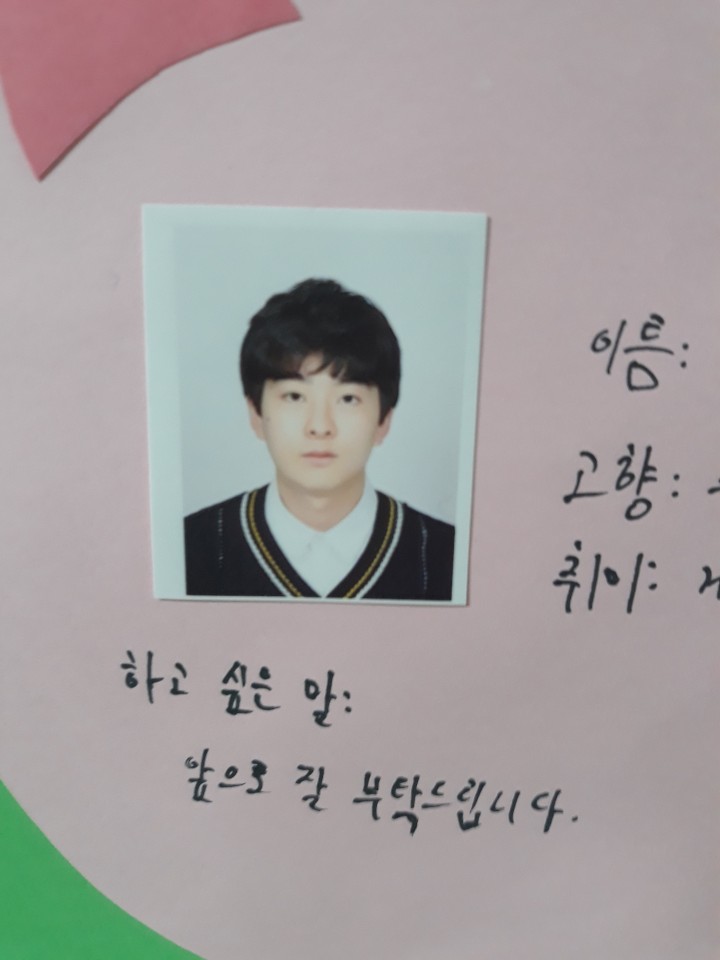 이름:
고향:
취미:
하고 싶은 말:
앞으로 잘 부탁드립니다.